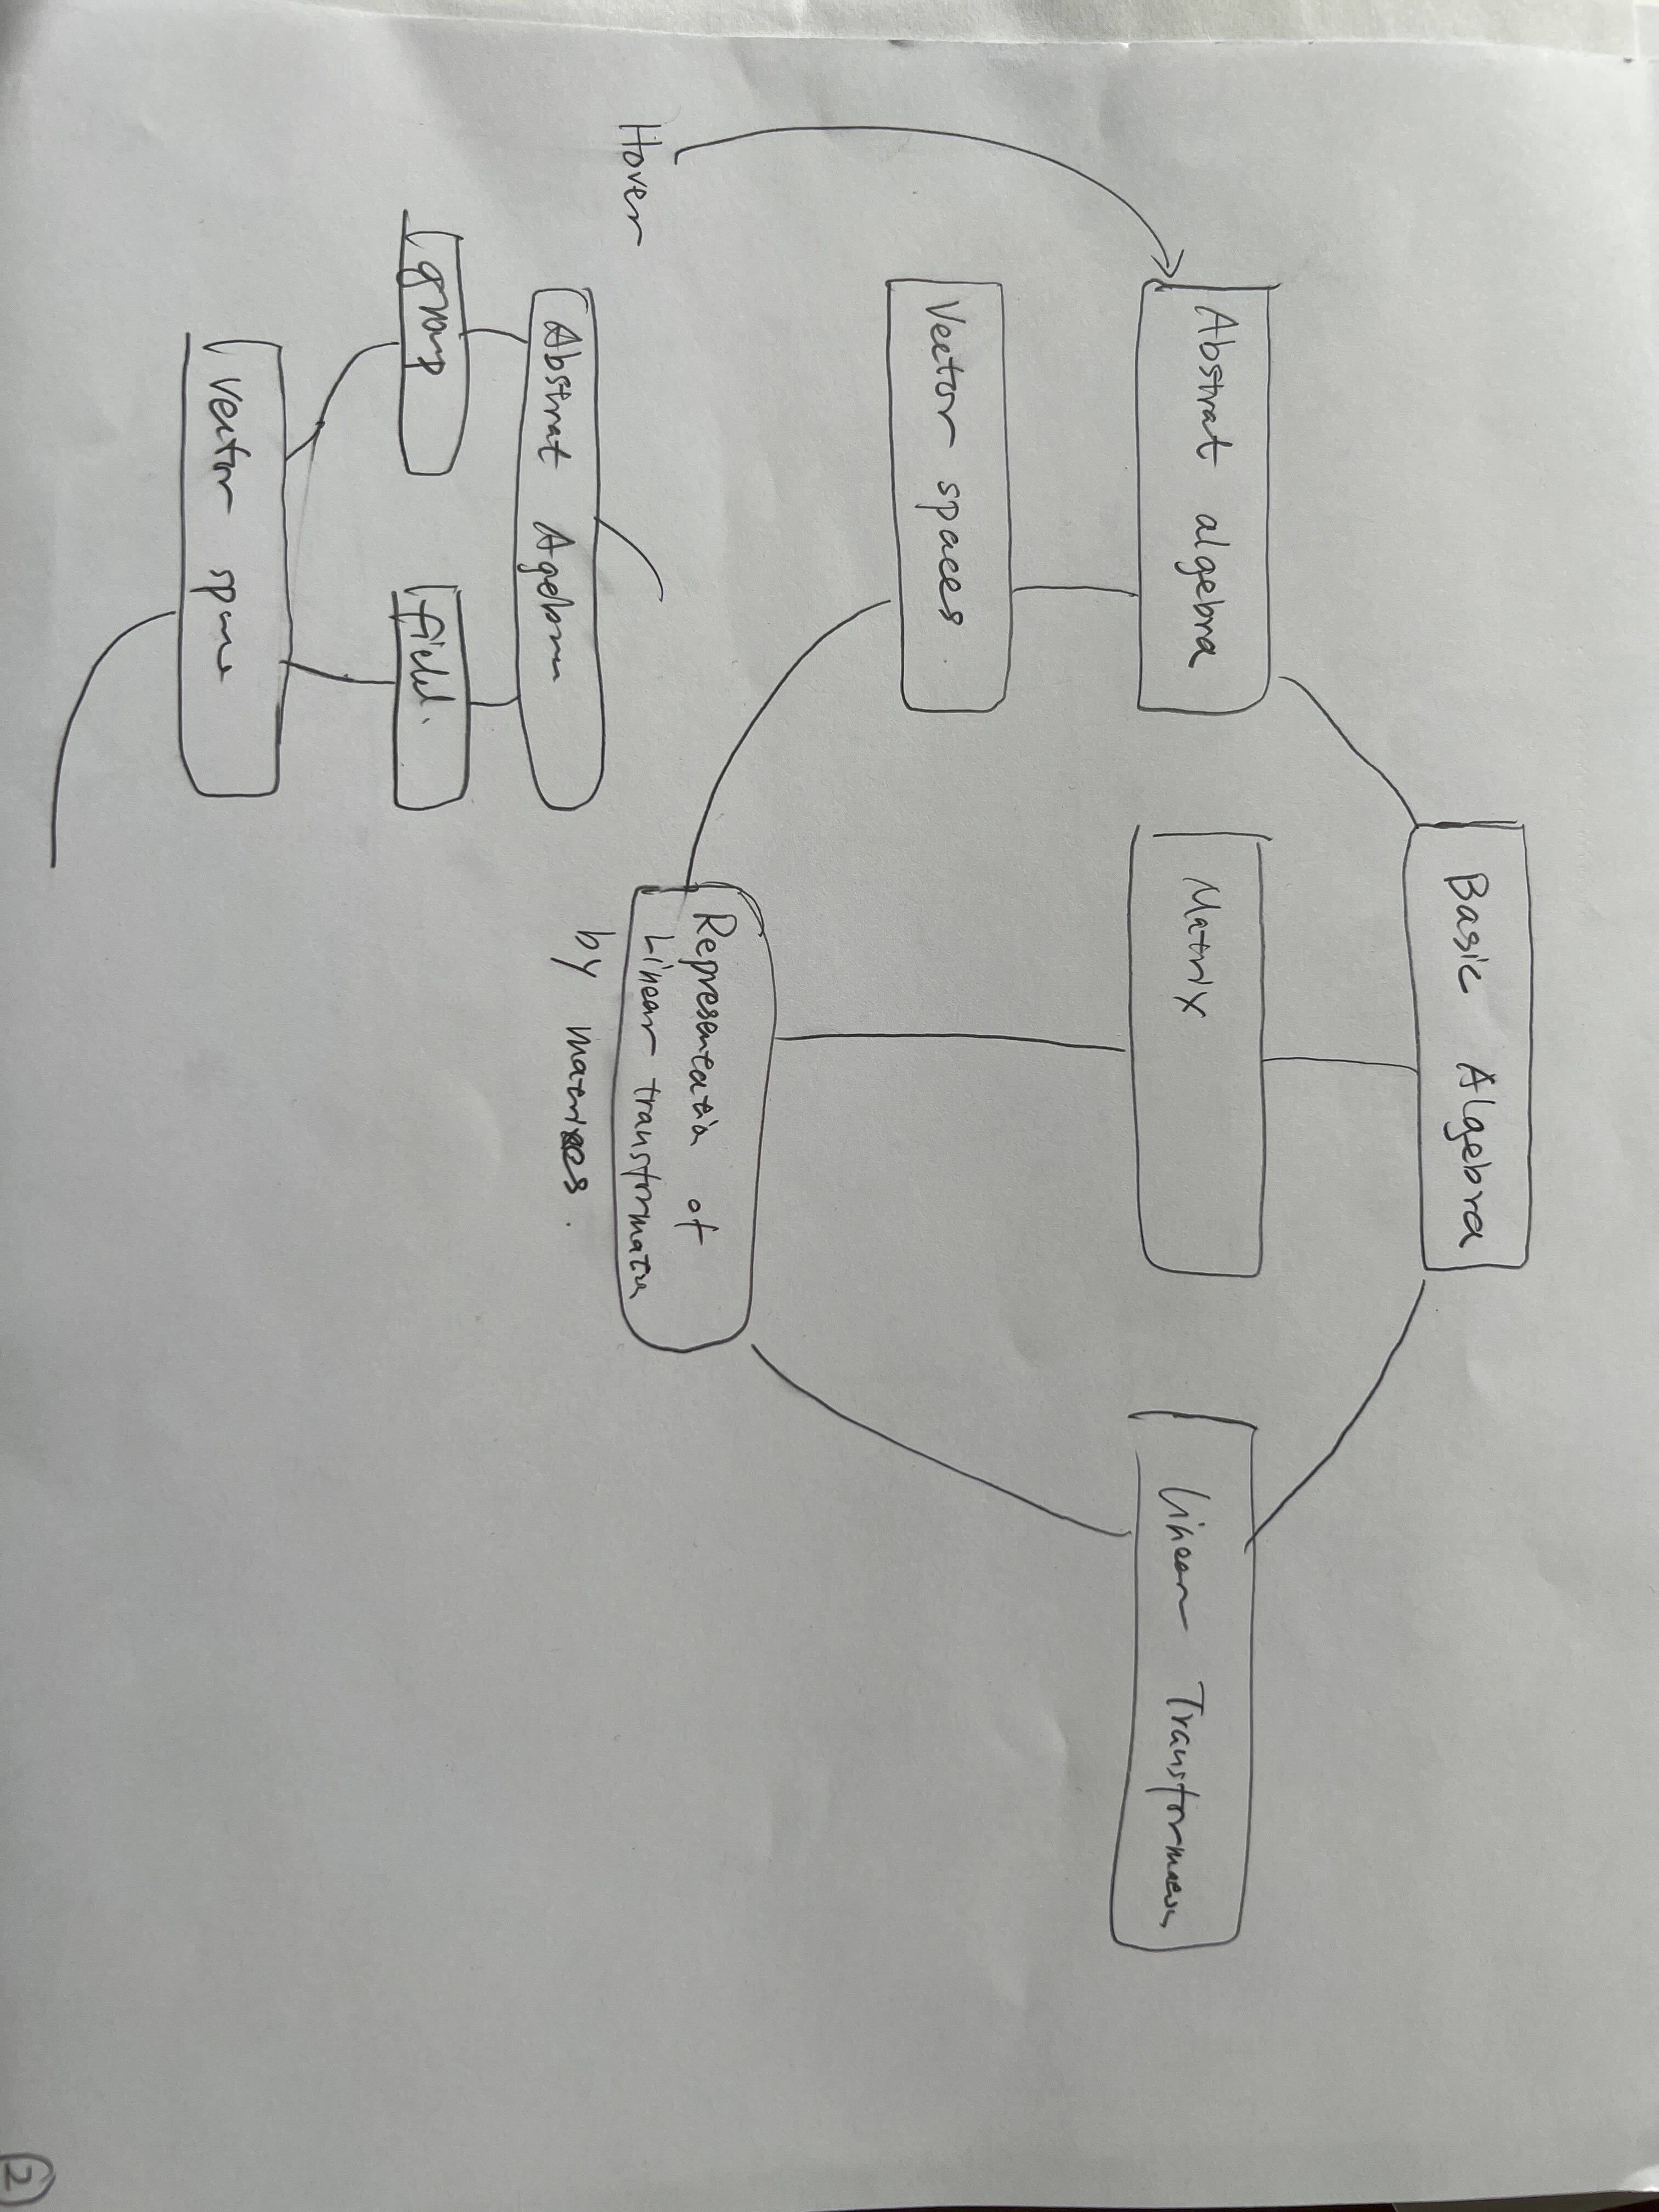 Basic Algebra
Abstrat algebra
Matrix
Linear Transformation
Vector spaces
Representatio of
Linear transformatio
by matrices.
Hover
Abstrat Agebra
group
field.
Vector space
2